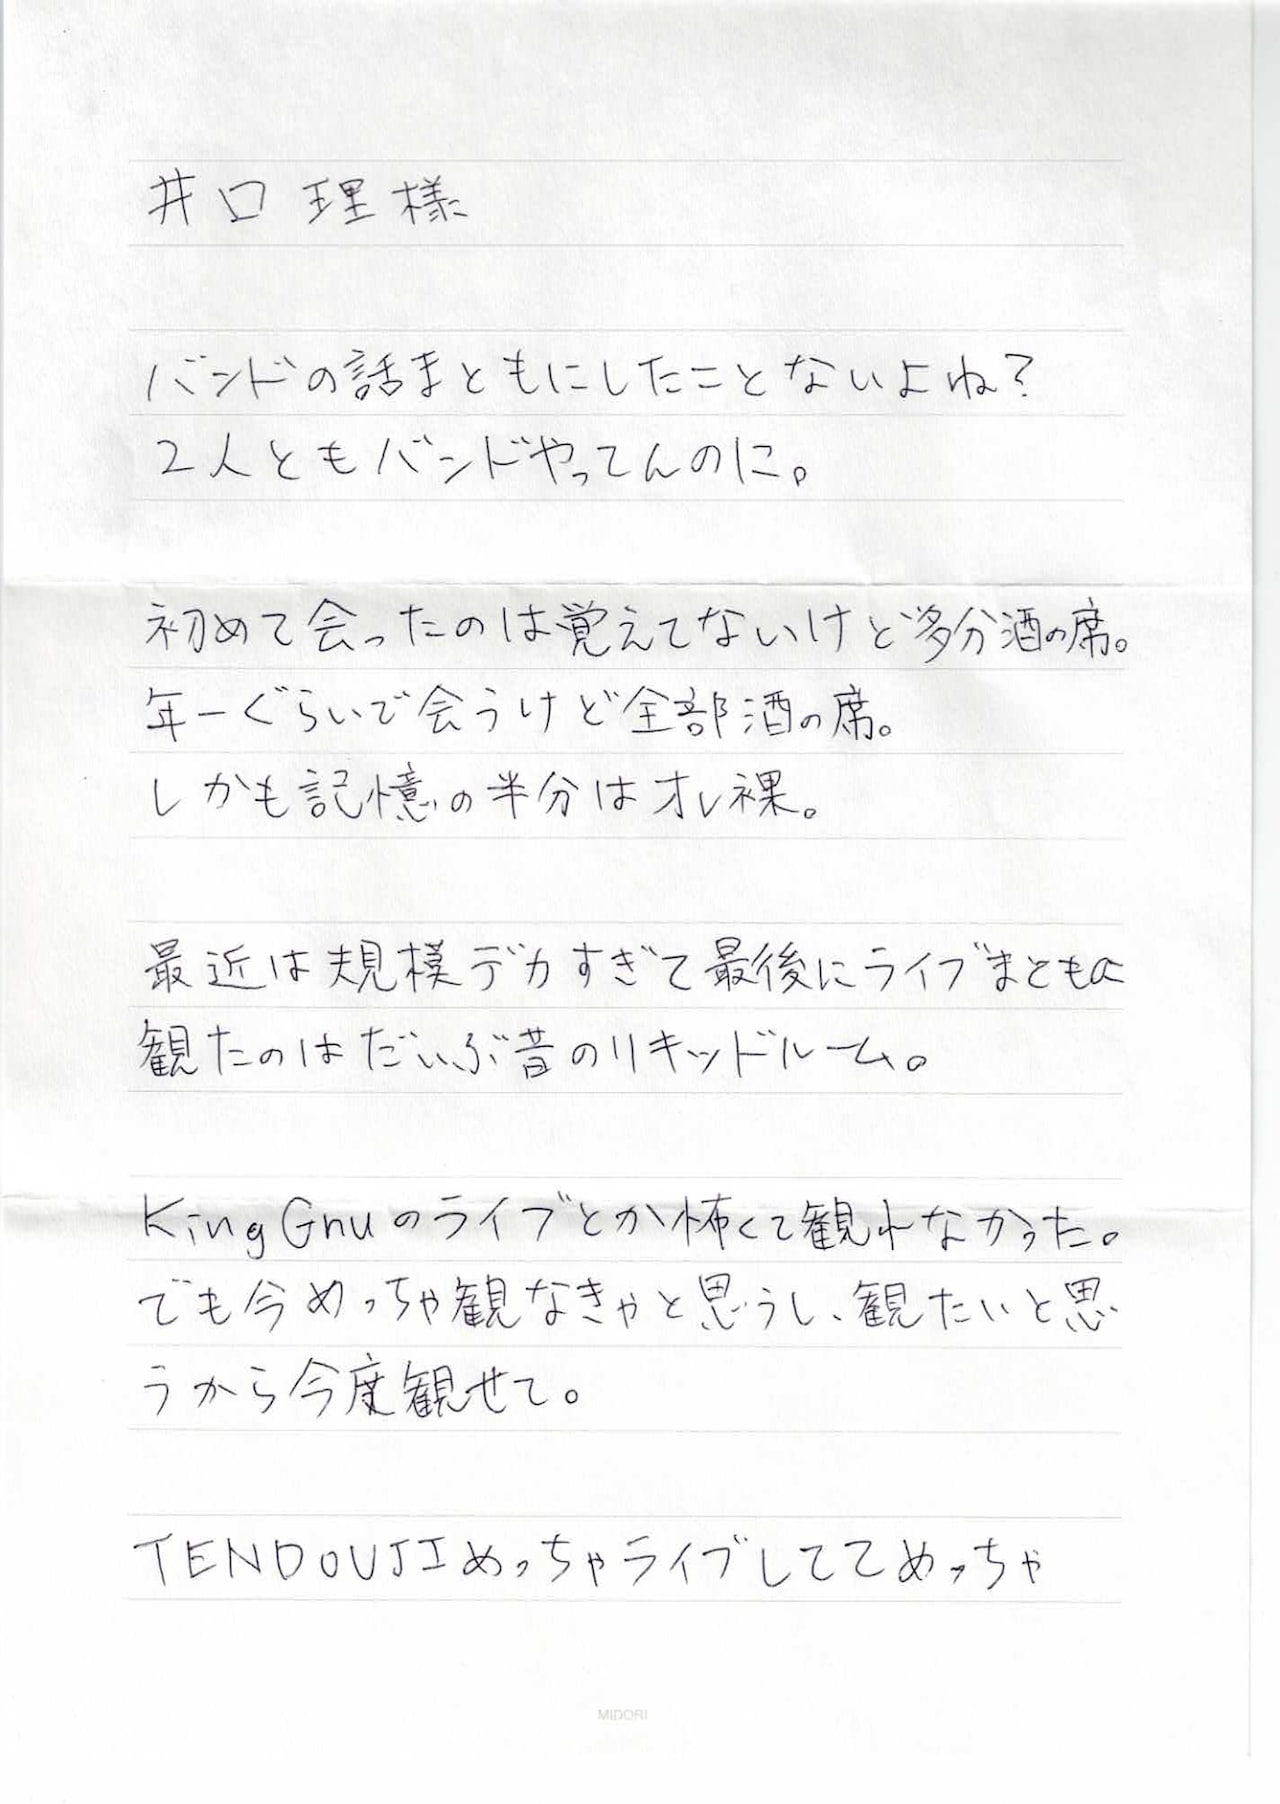 井口 理様
バンドの話まともにしたことないよね?
2人ともバンドやってんのに。
初めて会ったのは覚えてないけど多分酒の席。
年一ぐらいで会うけど全部酒の席。
しかも記憶の半分はオレ裸。
最近は規模デカすぎて最後にライブまともに
観たのはだいぶ昔のリキッドルーム。
King Gnuのライブとか怖くて観れなかった。
でも今めっちゃ観なきゃと思うし、観たいと思
うから今度観せて。
TENDOUJIめっちゃライブしててめっちゃ
MIDORI